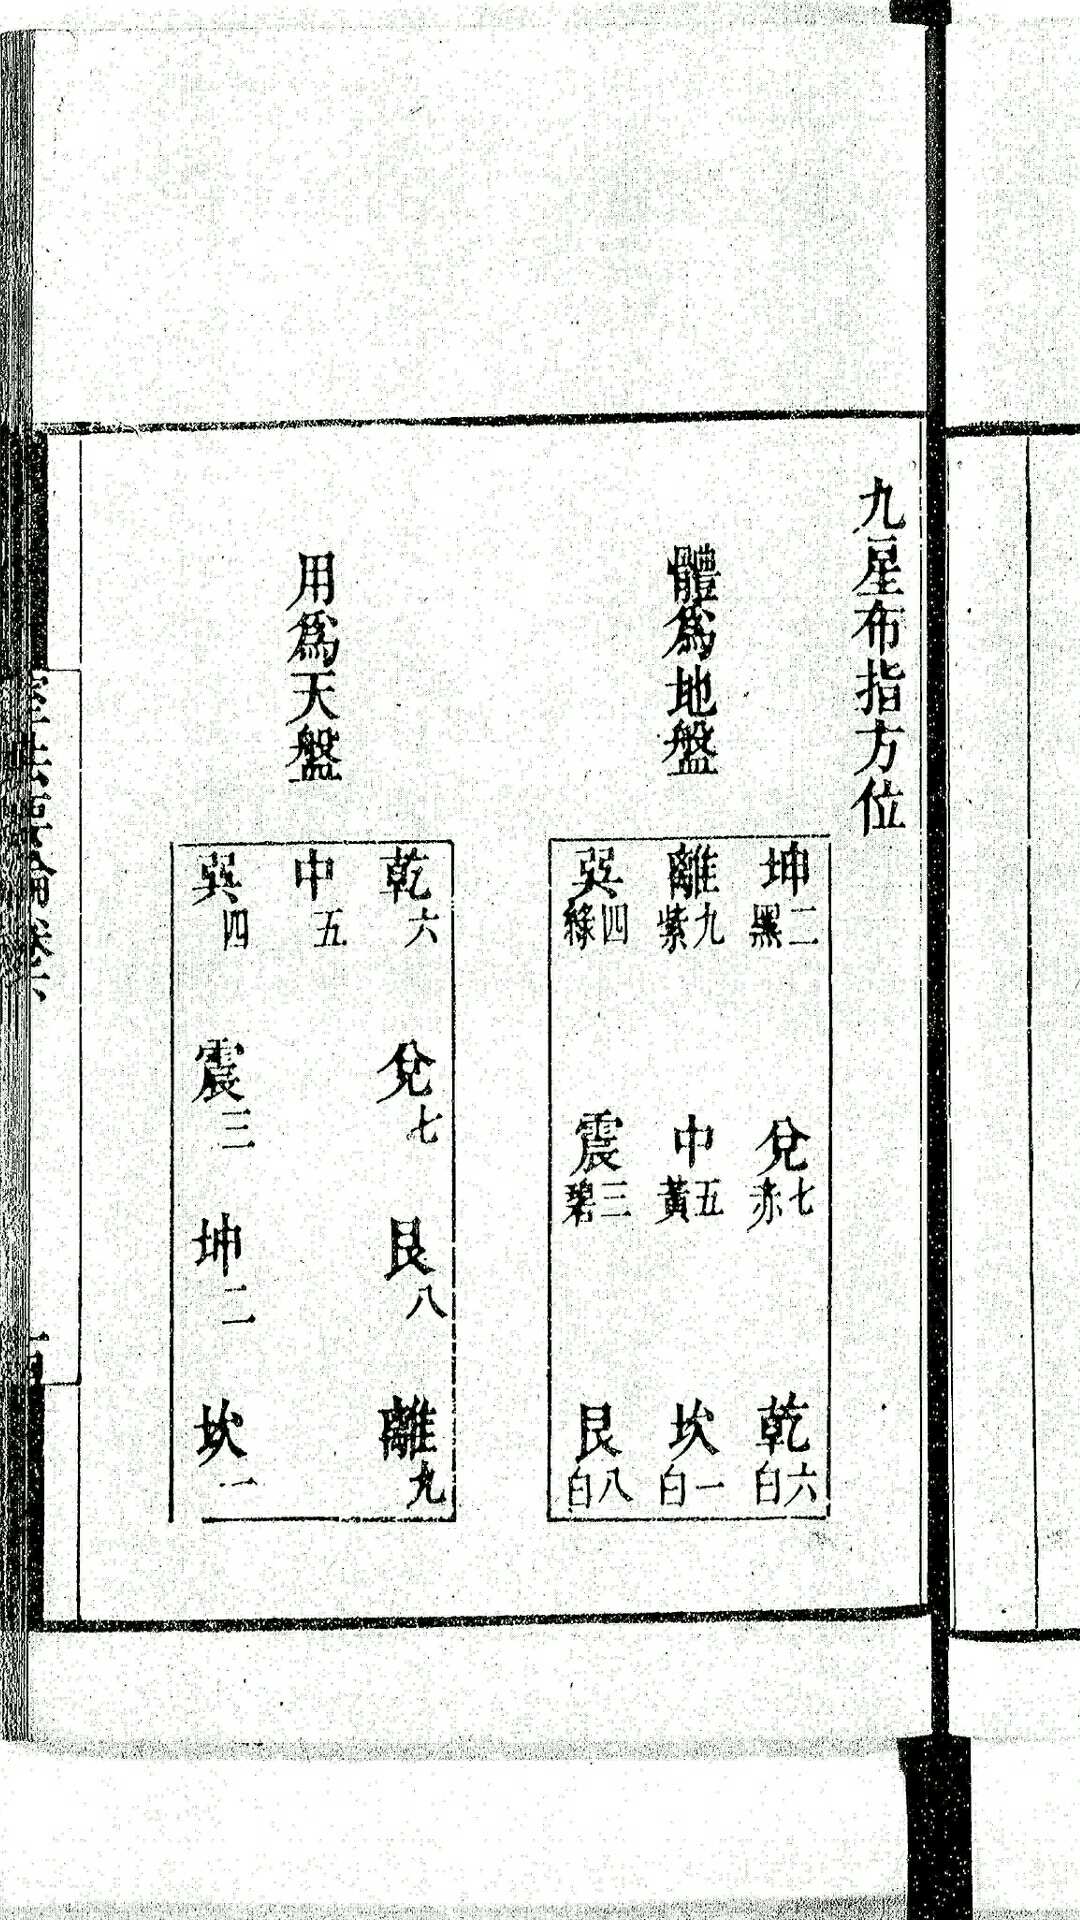 九星布指方位
體為地盤
坤二黑 兌七赤 乾六白
離九紫 中五黃 坎一白
巽四綠 震三碧 艮八白
用為天盤
乾六 兌七 艮八 離九
中五
巽四 震三 坤二 坎一